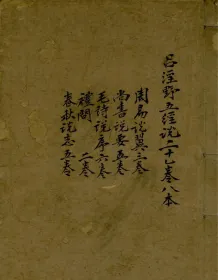 呂涇野五經說二十一卷八本
周易說翼三卷
尚書說要五卷
毛詩說序六卷
禮問二卷
春秋說志五卷